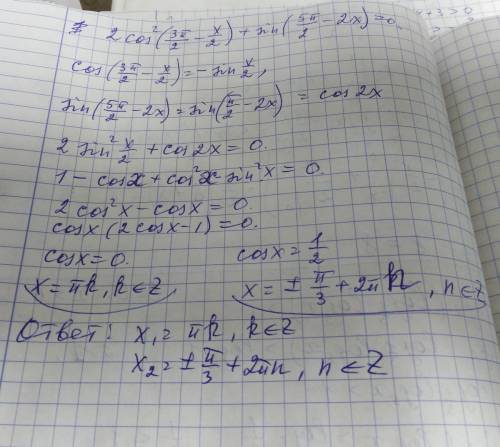 2 cos²(3π/2 − x/2) + sin(5π/2 − 2x) = 0.
cos(3π/2 − x/2) = − sin x/2,
sin(5π/2 − 2x) = sin(π/2 − 2x) = cos 2x
2 sin² x/2 + cos 2x = 0.
1 − cosx + cos²x sin²x = 0.
2 cos²x − cosx = 0.
cosx (2 cosx − 1) = 0.
cosx = 0. cosx = 1/2
x = πk, k ∈ Z x = ± π/3 + 2πn, n ∈ Z
Ответ: x₁ = πk, k ∈ Z
x₂ = ± π/3 + 2πn, n ∈ Z